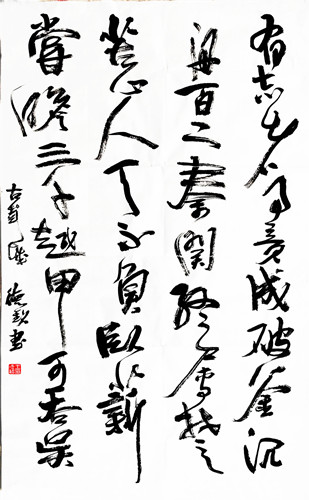 有志者事竟成破釜沉
舟百二秦関終属楚
苦心人天不負臥薪
嘗膽三千越甲可吞吴
古句
書